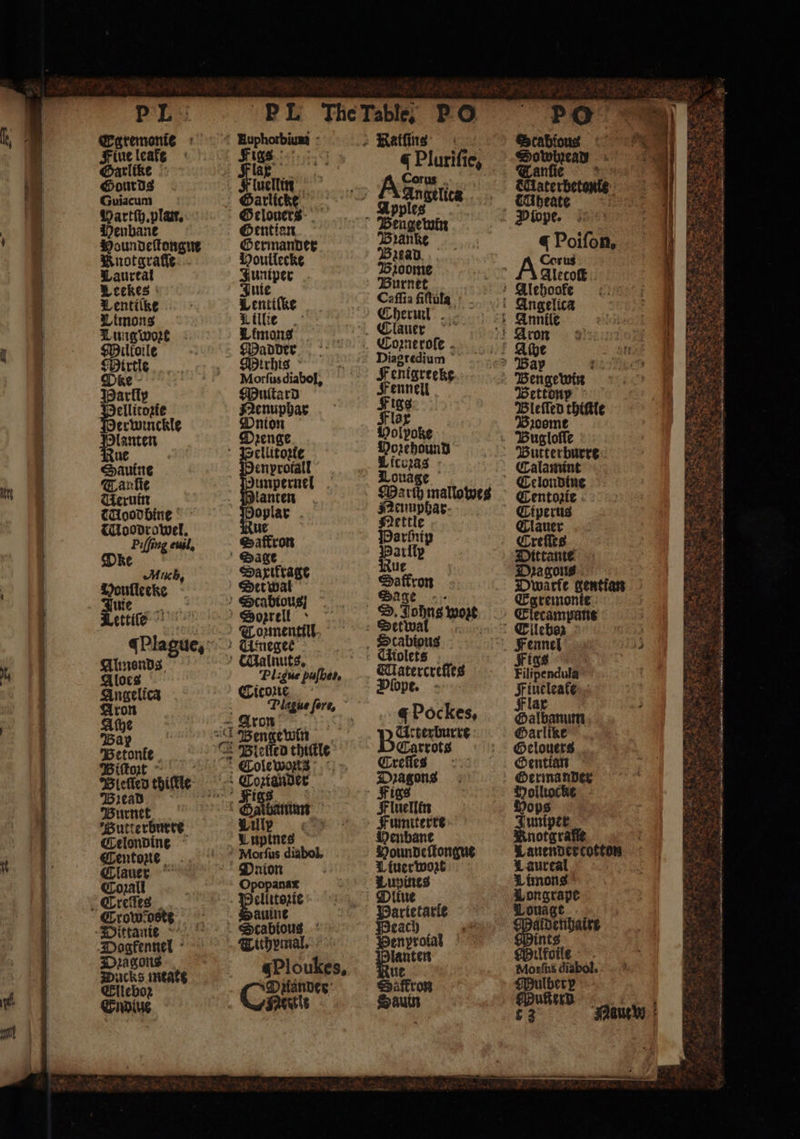 PL
PL The Table, PO
PO
Egremonie
Fiue leafe
Garlike
Gourds
Guiacum
Hartſh.plan.
Henbane
Houndeſtongue
Knotgraſſe
Laureal
Leekes
Lentilke
Limons
Lungwort
Milfoile
Mirtle
Oke
Parſly
Pellitorie
Perwinckle
Planten
Rue
Sauine
Tanſie
Veruin
Woodbine
Woodrowel.
Piſſing euil,
Oke
Much,
Houſleeke
Iuie
Lettiſe
¶Plague,
Almonds
Aloes
Angelica
Aron
Aſhe
Bay
Betonie
Biſtort
Bleſſed thiſtle
Bread
Burnet
Butterburre
Celondine
Centorie
Clauer
Corall
Creſſes
Crowfoote
Dittanie
Dogfennel
Dragons
Ducks meate
Ellebor
Endiue
Euphorbium
Figs
Flax
Fluellin
Garlicke
Gelouers
Gentian
Germander
Houſlecke
Iuniper
Iuie
Lentilke
Lillie
Limons
Madder
Mirhis
Morſus diabol,
Muſtard
Nenuphar
Onion
Orenge
Pellitorie
Penyroiall
Pumpernel
Planten
Poplar
Rue
Saffron
Sage
Saxifrage
Setwal
Scabious]
Sorrell
Tormentill
Vineger
Walnuts,
Plague puſhes,
Cicorie
Plague ſore,
Aron
Bengewin
Bleſſed thiſtle
Coleworts
Coriander
Figs
Galbanum
Lilly
Lupines
Morſus diabol.
Onion
Opopanax
Pellitorie
Sauine
Scabious
Tithymal.
¶Ploukes,
COriander
Neetle
Raiſins
¶Pluriſie,
ACorus
Angelica
Apples
Bengewin
Branke
Bread
Broome
Burnet
Caſſia fiſtula
Cheruil
Clauer
Corneroſe
Diagredium
Fenigreeke
Fennell
Figs
Flax
Holyoke
Horehound
Licoras
Louage
Marſh mallowes
Nenuphar
Nettle
Parſnip
Parſly
Rue
Saffron
Sage
S. Iohns wort
Setwal
Scabious
Violets
Watercreſſes
Yſope.
¶Pockes,
BVtterburre
Carrots
Creſſes
Dragons
Figs
Fluellin
Fumiterre
Henbane
Houndeſtongue
Liuerwort
Lupines
Oliue
Parietarie
Peach
Penyroial
Planten
Rue
Saffron
Sauin
Scabious
Sowbread
Tanſie
Waterbetonie
Wheate
Yſope.
¶Poiſon,
ACorus
Alecoſt
Alehoofe
Angelica
Anniſe
Aron
Aſhe
Bay
Bengewin
Bettony
Bleſſed thiſtle
Broome
Bugloſſe
Butterburre
Calamint
Celondine
Centorie
Ciperus
Clauer
Creſſes
Dittanie
Dragons
Dwarfe gentian
Egremonie
Elecampane
Ellebor
Fennel
Figs
Filipendula
Fiueleafe
Flax
Galbanum
Garlike
Gelouers
Gentian
Germander
Holliocke
Hops
Iuniper
Knotgraſſe
Lauendercotton
Laureal
Limons
Longrape
Louage
Maidenhaire
Mints
Milfoile
Morſus diabol.
Mulbery
Muſterd
Nauew